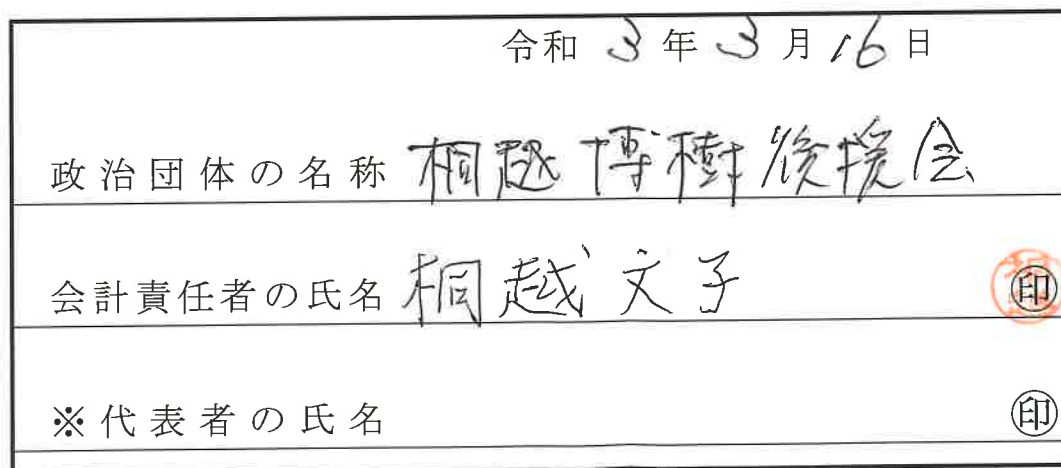 令和 3 年 3 月 16 日
政治団体の名称 桐越博樹後援会
会計責任者の氏名 桐越文子 印
※代表者の氏名 印